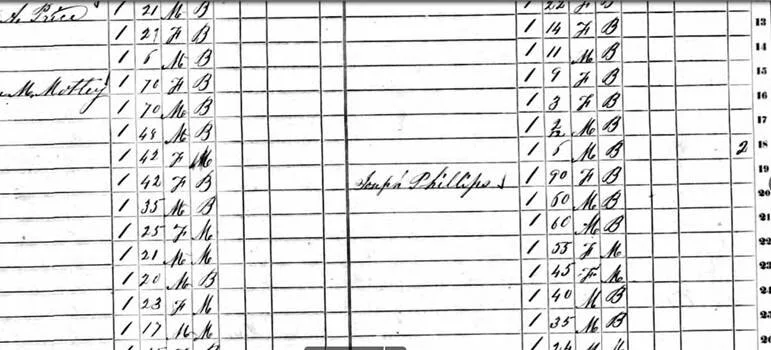 A. Price 1 21 M B
1 27 F B
1 5 M B
M. Motley 1 70 F B
1 70 M B
1 48 M B
1 42 F M
1 42 F B
1 35 M B
1 25 F M
1 21 M M
1 20 M B
1 23 F M
1 17 M M
1 22 F B
1 14 F B 13
1 11 M B 14
1 9 F B 15
1 3 F B 16
1 2/12 M B 17
1 5 M B 2 18
Joseph Phillips 1 90 F B 19
1 50 M B 20
1 60 M B 21
1 55 F M 22
1 45 F M 23
1 40 M B 24
1 35 M B 25
1 24 26